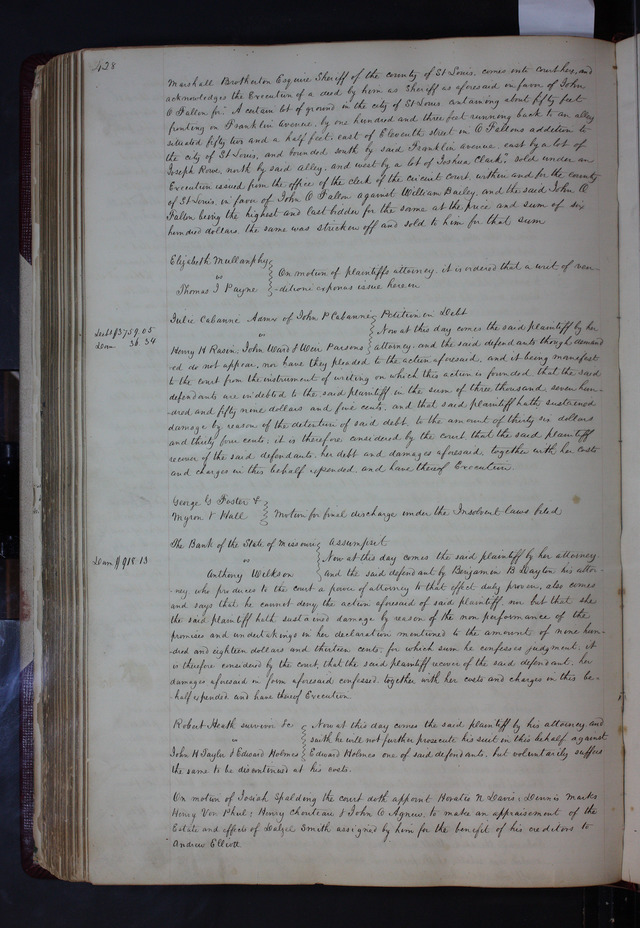 428
Marshall Brotherton Esquire Sheriff of the county of St Louis, comes into court here, and
acknowledges the Execution of a deed by him as Sheriff as aforesaid in favor of John
O Fallon for A certain lot of ground in the city of St Louis containing about fifty feet
fronting on Franklin avenue, by one hundred and three feet running back to an alley
situated fifty two and a half feet, east of Eleventh street in O Fallons addition to
the city of St Louis, and bounded south by said Franklin avenue, east by a lot of
Joseph Rowe, north by said alley, and west by a lot of Joshua Clark; sold under an
Execution issued from the office of the clerk of the circuit court within and for the county
of St Louis, in favor of John O Fallon against William Bailey, and the said John O
Fallon being the highest and last bidder for the same at the price and sum of six
hundred dollars, the same was stricken off and sold to him for that sum
Elizabeth Mullanphy
vs
Thomas J Payne
On motion of plaintiffs attorney, it is ordered that a writ of ven-
-ditioni exponas issue herein
Debt $3759.05
Dam 36 34
Julie Cabanné Admx of John P Cabanné Petition in Debt
vs
Now at this day comes the said plaintiff by her
Henry H Rasin, John Ward & Weir Parsons attorney, and the said defendants though demand
-ed do not appear, nor have they pleaded to the action aforesaid, and it being manifest
to the court from the instrument of writing on which this action is founded, that the said
defendants are indebted to the said plaintiff in the sum of three thousand seven hun-
-dred and fifty nine dollars and five cents, and that said plaintiff hath sustained
damage by reason of the detention of said debt, to the amount of thirty six dollars
and thirty four cents, it is therefore considered by the court that the said plaintiff
recover of the said defendants, her debt and damages aforesaid, together with her costs
and charges in this behalf expended, and have thereof Execution
George G Foster &
Myron V Hall
Motion for final discharge under the Insolvent laws filed
Dam $918 13
The Bank of the State of Missouri Assumpsit
vs
Now at this day comes the said plaintiff by her attorney
Anthony Wilkson and the said defendant by Benjamin B Dayton, his attor-
-ney, who produces to the court a power of attorney to that effect duly proven, also comes
and says that he cannot deny the action aforesaid of said plaintiff, nor but that she
the said plaintiff hath sustained damage by reason of the non performance of the
promises and undertakings in her declaration mentioned to the amount of nine hun-
-dred and eighteen dollars and thirteen cents, for which sum he confesses judgment, it
is therefore considered by the court, that the said plaintiff recover of the said defendant, her
damages aforesaid in form aforesaid confessed, together with her costs and charges in this be-
-half expended and have thereof Execution
Robert Heath survivor &c Now at this day comes the said plaintiff by his attorney, and
vs
saith he will not further prosecute his suit in this behalf against
John H Taylor & Edward Holmes Edward Holmes one of said defendants, but voluntarily suffers
the same to be discontinued at his costs.
On motion of Josiah Spalding the court doth appoint Horatio N Davis, Dennis Marks
Henry Von Phul, Henry Chouteau & John O Agnew to make an appraisement of the
Estate and effects of Dalzel Smith assigned by him for the benefit of his creditors to
Andrew Elliott